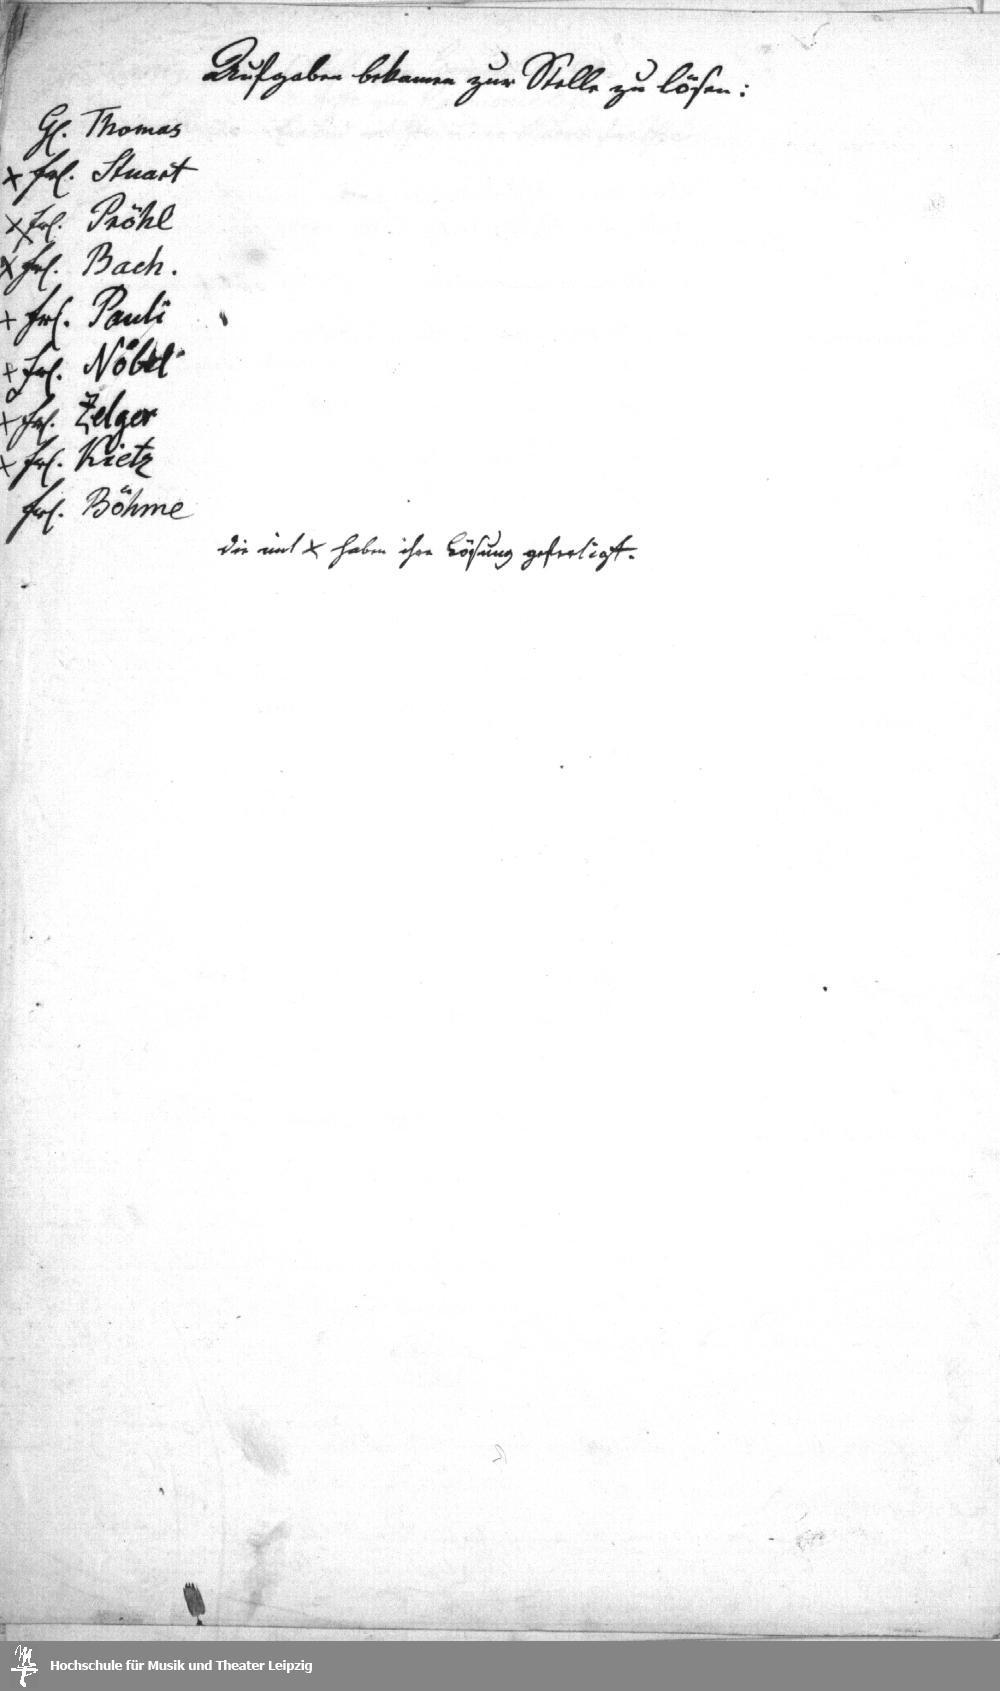 Aufgaben bekamen zur Stelle zu lösen:
H. Thomas
x Frl. Stuart
x Frl. Pröhl
x Frl. Bach.
+ Frl. Pauli
+ Frl. Nöbel
+ Frl. Zelger
x Frl. Kietz
Frl. Böhme
die mit x haben ihre Lösung gefertigt.
Hochschule für Musik und Theater Leipzig